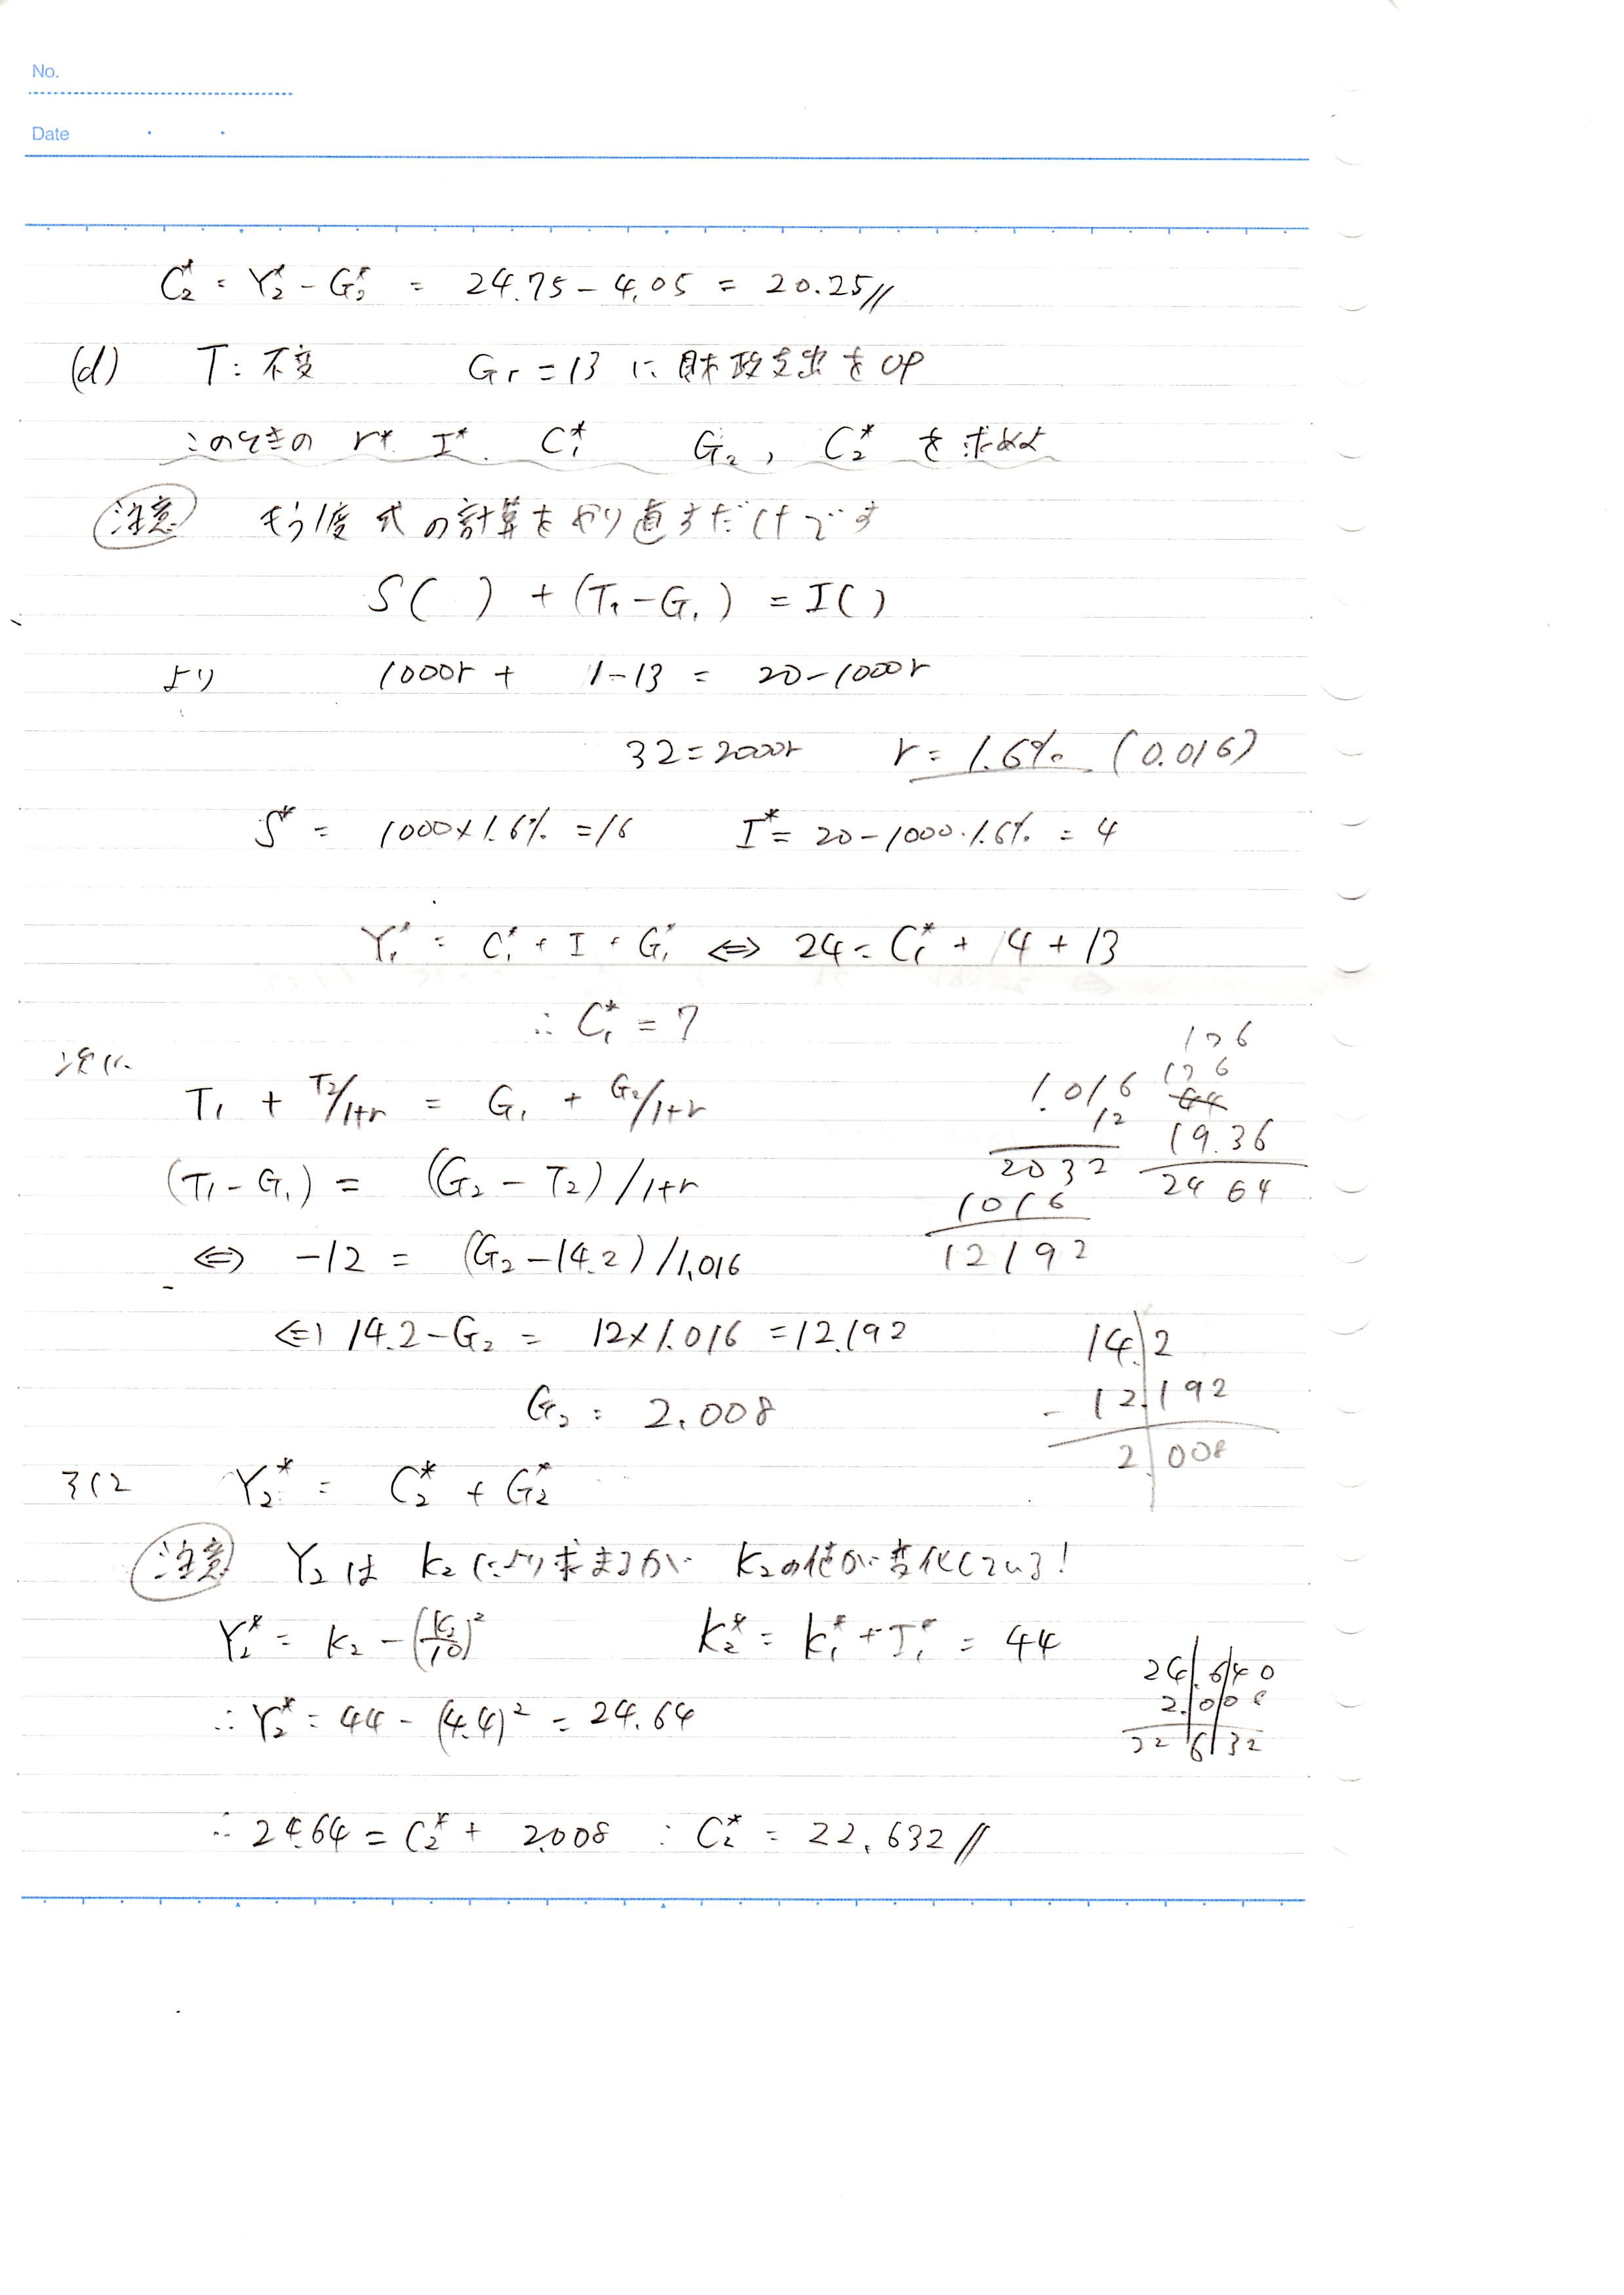 No.
Date
C₂* = Y₂* - G₂* = 24.75 - 4.05 = 20.25 //
(d) T: 不変 G₁ = 13 に 財政支出を UP
このときの r* I* C₁* G₂, C₂* を求めよ
注意 もう1度 式の計算をやり直すだけです
S( ) + (T₁ - G₁) = I( )
より 1000r + 1 - 13 = 20 - 1000r
32 = 2000r r = 1.6% (0.016)
S* = 1000 × 1.6% = 16 I* = 20 - 1000・1.6% = 4
Y₁* = C₁* + I + G₁* ⇔ 24 = C₁* + 4 + 13
∴ C₁* = 7
次に
T₁ + T₂/1+r = G₁ + G₂/1+r
(T₁ - G₁) = (G₂ - T₂)/1+r
⇔ -12 = (G₂ - 14.2)/1.016
⇔ 14.2 - G₂ = 12 × 1.016 = 12.192
G₂ = 2.008
そして Y₂* = C₂* + G₂*
注意 Y₂は K₂により求まるが K₂の値が変化している!
Y₂* = K₂ - (K₂/10)² K₂* = K₁* + I₁* = 44
∴ Y₂* = 44 - (4.4)² = 24.64
∴ 24.64 = C₂* + 2.008 ∴ C₂* = 22.632 //
1.016
12
2032
1016
12192
176
176
19.36
24 64
14.2
- 12.192
2 008
24.640
2.008
22 632